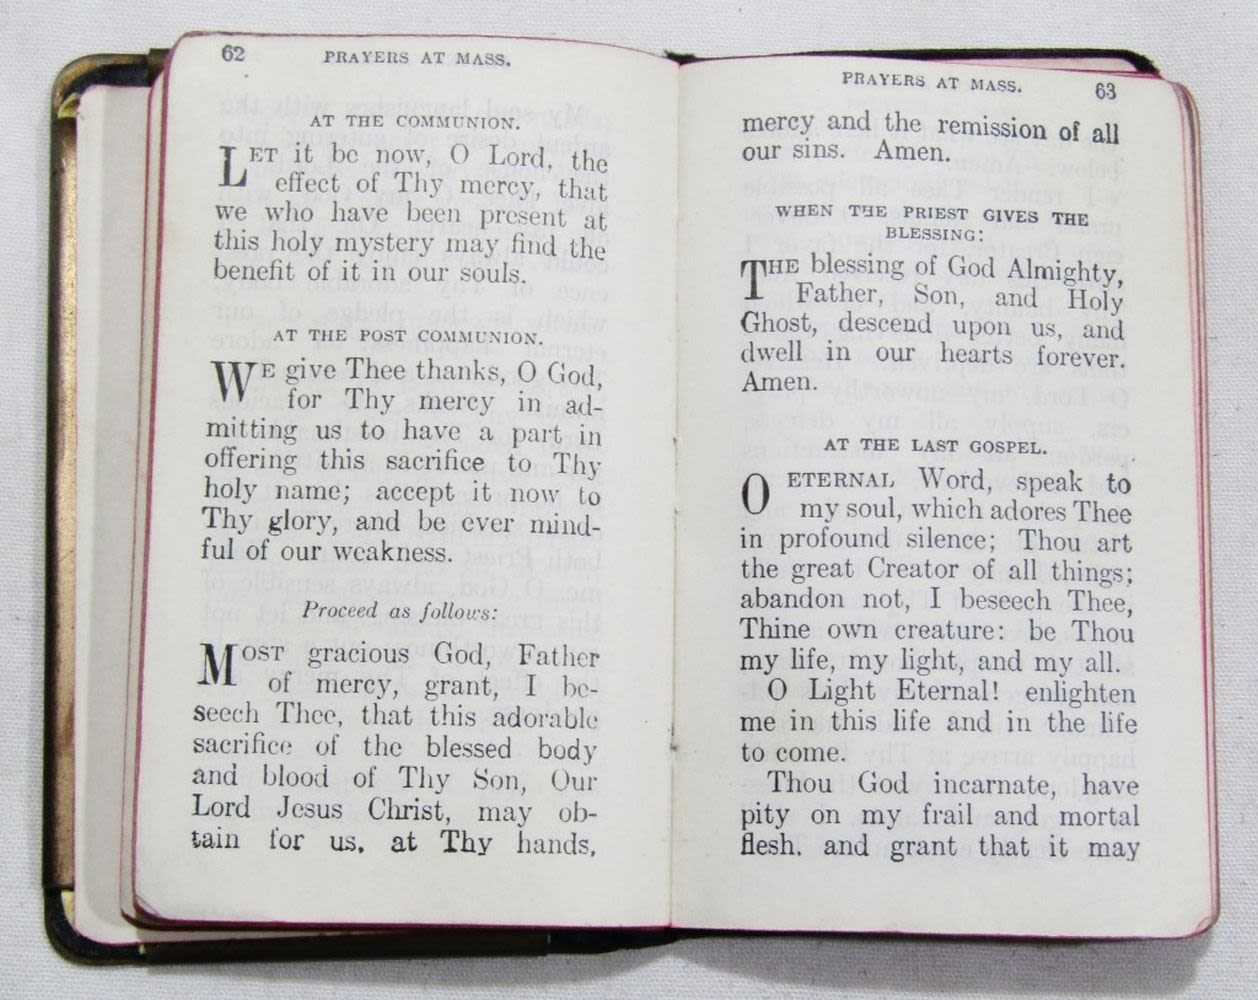 62
PRAYERS AT MASS.
AT THE COMMUNION.
LET it be now, O Lord, the
effect of Thy mercy, that
we who have been present at
this holy mystery may find the
benefit of it in our souls.
AT THE POST COMMUNION.
WE give Thee thanks, O God,
for Thy mercy in ad-
mitting us to have a part in
offering this sacrifice to Thy
holy name; accept it now to
Thy glory, and be ever mind-
ful of our weakness.
Proceed as follows:
MOST gracious God, Father
of mercy, grant, I be-
seech Thee, that this adorable
sacrifice of the blessed body
and blood of Thy Son, Our
Lord Jesus Christ, may ob-
tain for us, at Thy hands,
PRAYERS AT MASS.
63
mercy and the remission of all
our sins. Amen.
WHEN THE PRIEST GIVES THE
BLESSING:
THE blessing of God Almighty,
Father, Son, and Holy
Ghost, descend upon us, and
dwell in our hearts forever.
Amen.
AT THE LAST GOSPEL.
O ETERNAL Word, speak to
my soul, which adores Thee
in profound silence; Thou art
the great Creator of all things;
abandon not, I beseech Thee,
Thine own creature: be Thou
my life, my light, and my all.
O Light Eternal! enlighten
me in this life and in the life
to come.
Thou God incarnate, have
pity on my frail and mortal
flesh, and grant that it may